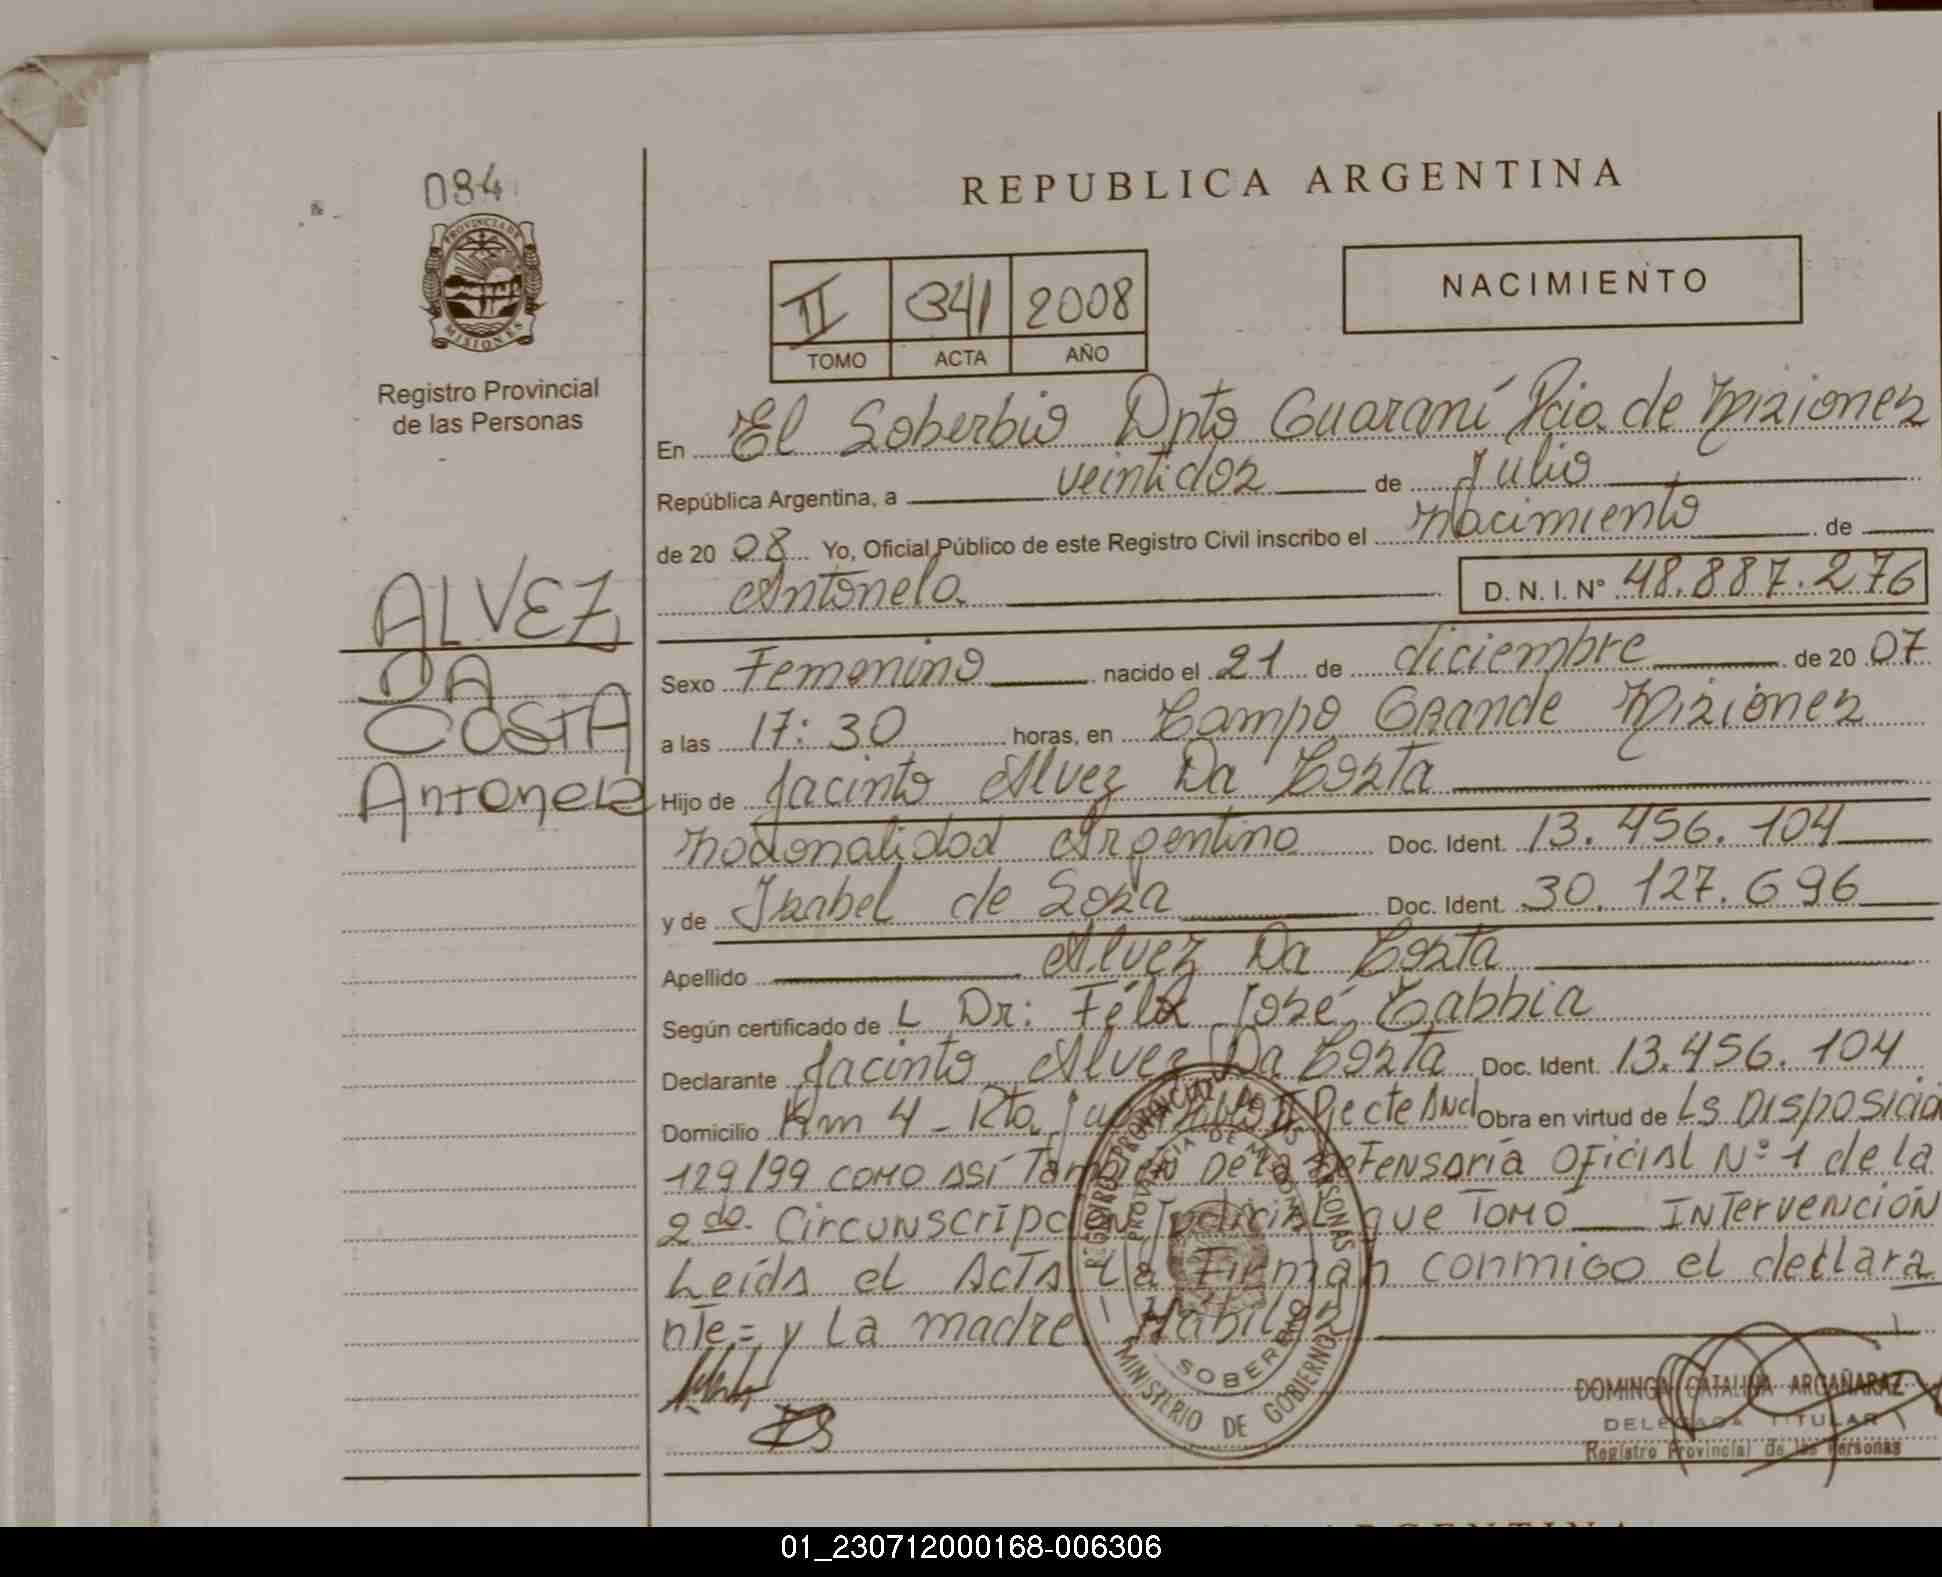 084
PROVINCIA DE
MISIONES
Registro Provincial
de las Personas
REPUBLICA ARGENTINA
II 341 2008
TOMO ACTA AÑO
NACIMIENTO
En El Soberbio Dpto Guaraní Pcia. de Misiones
República Argentina, a veintidos de Julio
de 20 08 Yo, Oficial Público de este Registro Civil inscribo el nacimiento de
Antonela D. N. I. Nº 48.887.276
ALVEZ
DA
COSTA
Antonela
Sexo Femenino nacido el 21 de diciembre de 20 07
a las 17:30 horas, en Campo Grande Misiones
Hijo de Jacinto Alvez Da Costa
nacionalidad Argentino Doc. Ident. 13.456.104
y de Isabel de Sosa Doc. Ident. 30.127.696
Apellido Alvez Da Costa
Según certificado de L Dr: Félix José Cabbia
Declarante Jacinto Alvez Da Costa Doc. Ident. 13.456.104
Domicilio Km 4 - Rta Obra en virtud de La Disposició
129/99 como así También De la Defensoría Oficial Nº 1 de la
2do. Circunscripción Judicial que Tomó Intervención
Leída el Acta La Firman conmigo el declara
nte = y La madre Habiles
REGISTRO PROVINCIAL DE LAS PERSONAS
PROVINCIA DE MISIONES
SOBERBIO
MINISTERIO DE GOBIERNO
DOMINGA CATALINA ARGAÑARAZ
DELEGADA TITULAR
Registro Provincial de las Personas
01_230712000168-006306